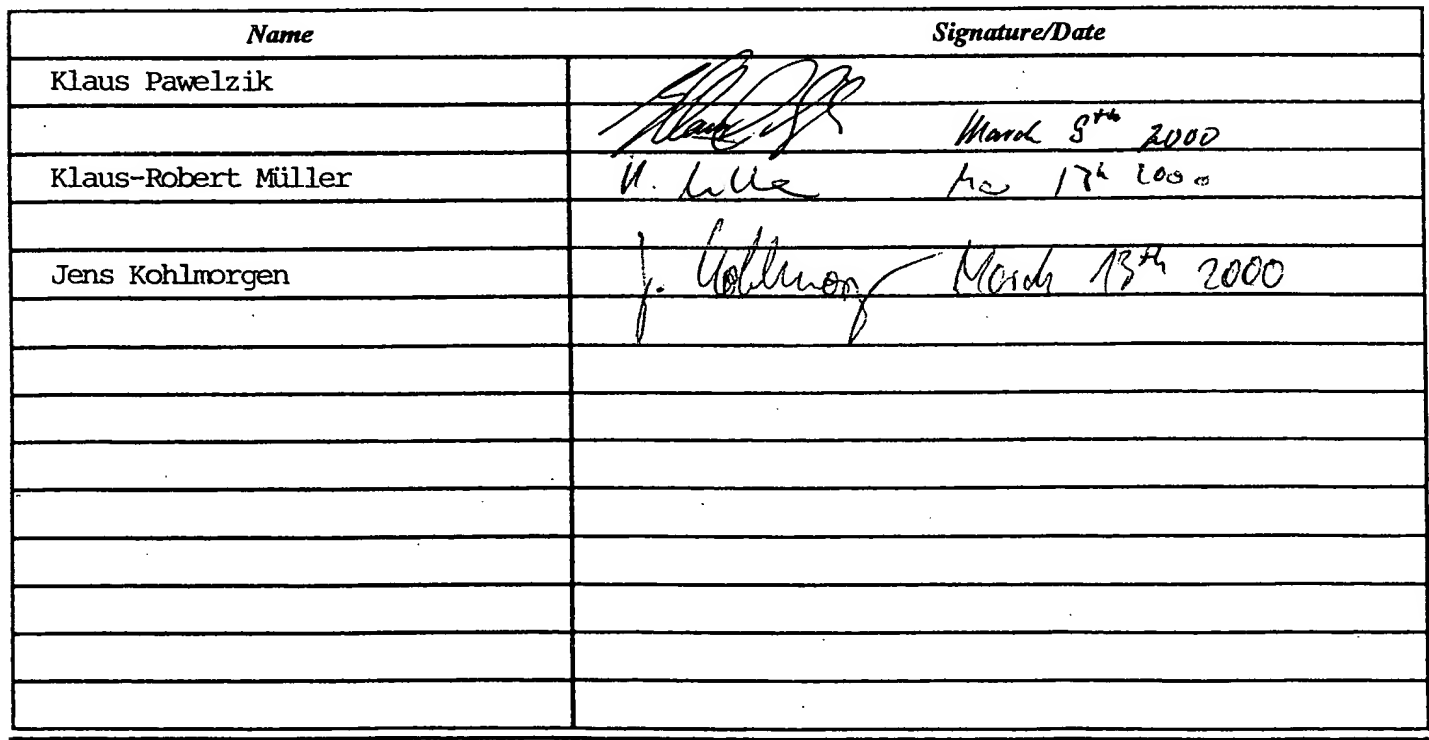 Name Signature/Date
Klaus Pawelzik
March 2000
Klaus-Robert Müller
2000
Jens Kohlmorgen J. Kohlmorg March 13th 2000